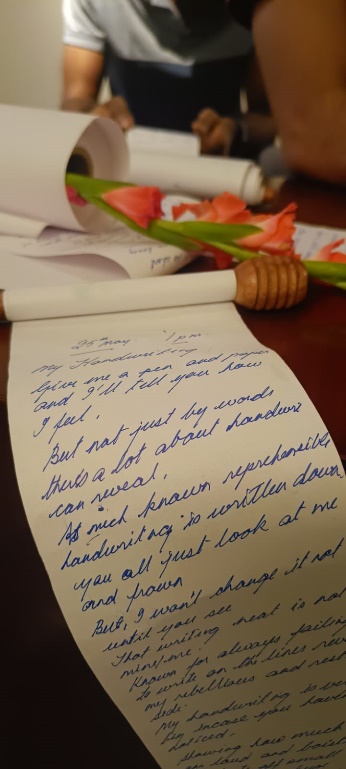 25th may 7pm
My Handwriting
Give me a pen and paper
and I'll tell you how
I feel.
But not just by words
there's a lot about handwri
can reveal.
As much known reprehensible
handwriting is written down.
you all just look at me
and frown
But, I won't change it not
until you see
That writing neat is not
mine/me!
Known for always failing
to write on the lines
my rebellious and
side.
My handwriting is
big incase you have
noticed.
showing how much
loud and
small